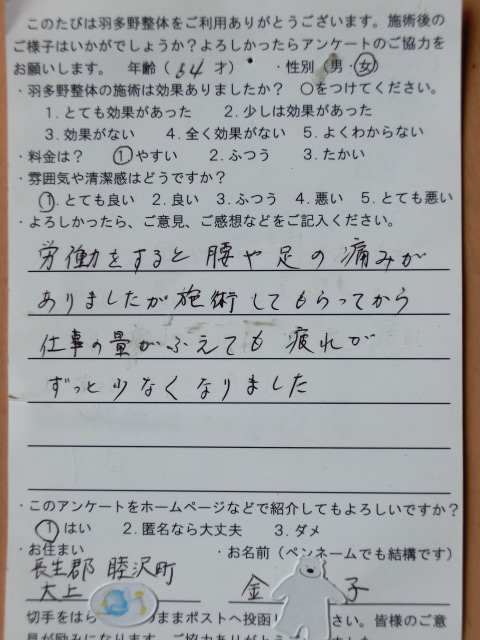 このたびは羽多野整体をご利用ありがとうございます。施術後の
ご様子はいかがでしょうか?よろしかったらアンケートのご協力を
お願いします。 年齢（ 64 才） ・性別（男・女）
・羽多野整体の施術は効果ありましたか? ○をつけてください。
1. とても効果があった 2. 少しは効果があった
3. 効果がない 4. 全く効果がない 5. よくわからない
・料金は? 1. やすい 2. ふつう 3. たかい
・雰囲気や清潔感はどうですか?
1. とても良い 2. 良い 3. ふつう 4. 悪い 5. とても悪い
・よろしかったら、ご意見、ご感想などをご記入ください。
労働をすると腰や足の痛みが
ありましたが施術してもらってから
仕事の量がふえても疲れが
ずっと少なくなりました
・このアンケートをホームページなどで紹介してもよろしいですか?
1. はい 2. 匿名なら大丈夫 3. ダメ
・お住まい ・お名前（ペンネームでも結構です）
長生郡 睦沢町
大上 金 子
切手をはら のままポストへ投函 さい。皆様のご意
見が励みになります。ご協力ありがとう